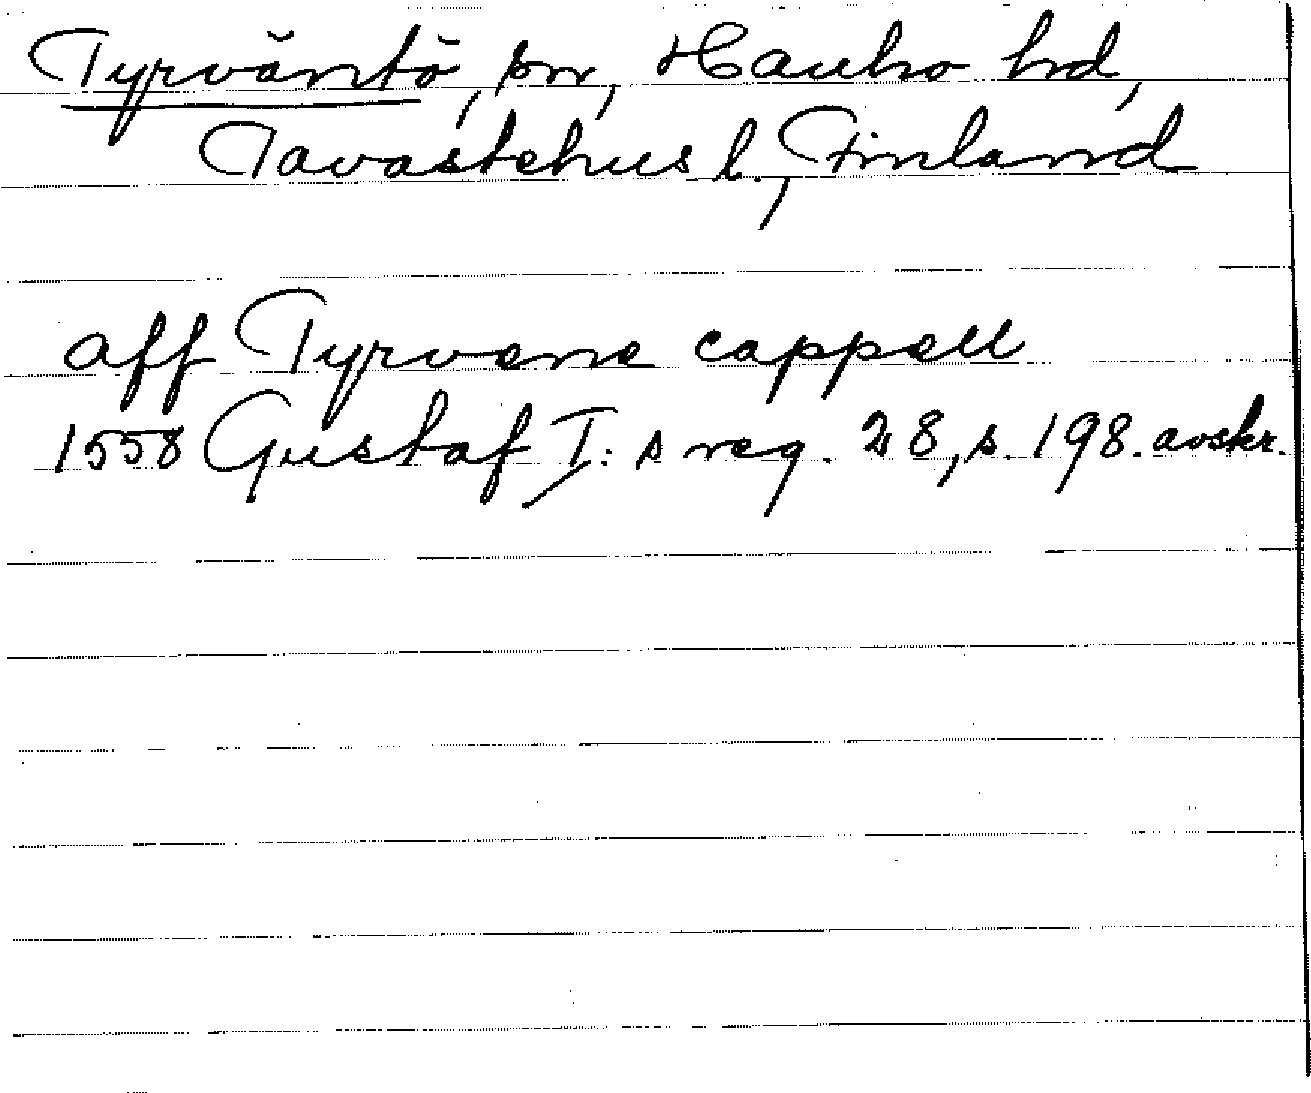 Tyrväntö, sn, Hauho hd,
Tavastehus l., Finland
aff Tyrvene cappell
1558 Gustaf I: s reg. 28, s. 198. avskr.